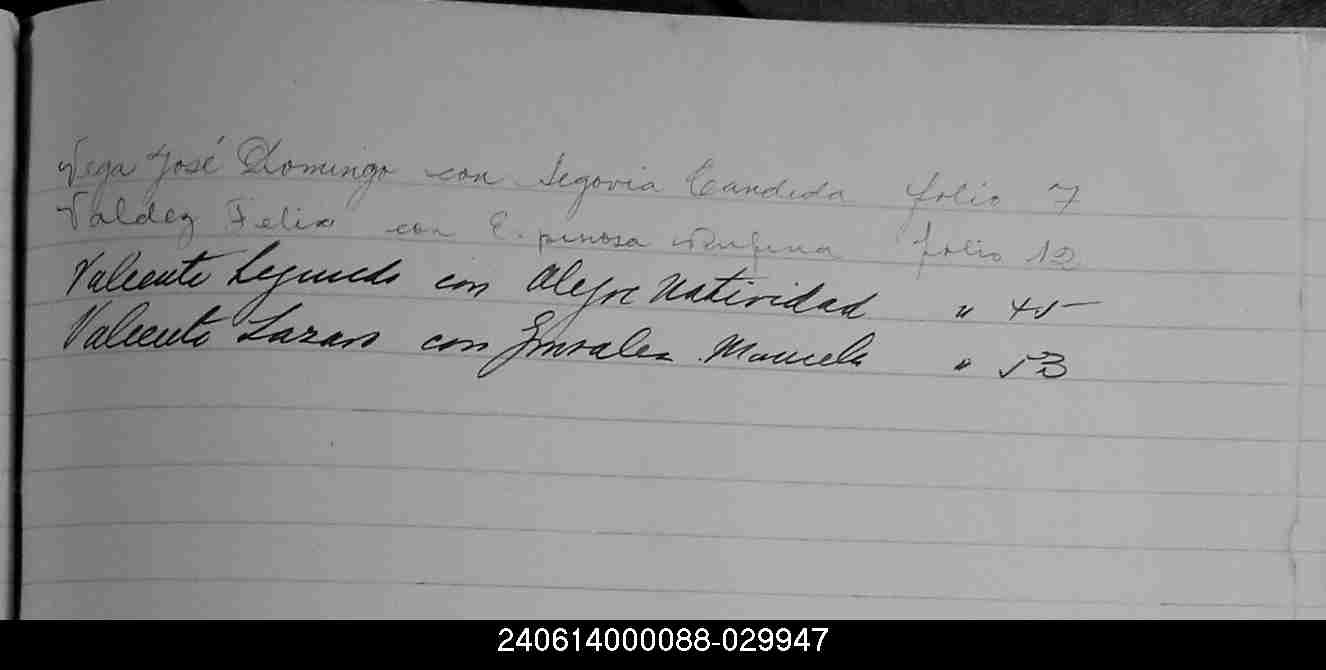 Vega José Domingo con Segovia Candida folio 7
Valdez Felix con Espinosa Rufina folio 12
Valiente Segundo con Alegre Natividad " 45
Valiente Lazaro con Gonzalez Marcela " 53
240614000088-029947